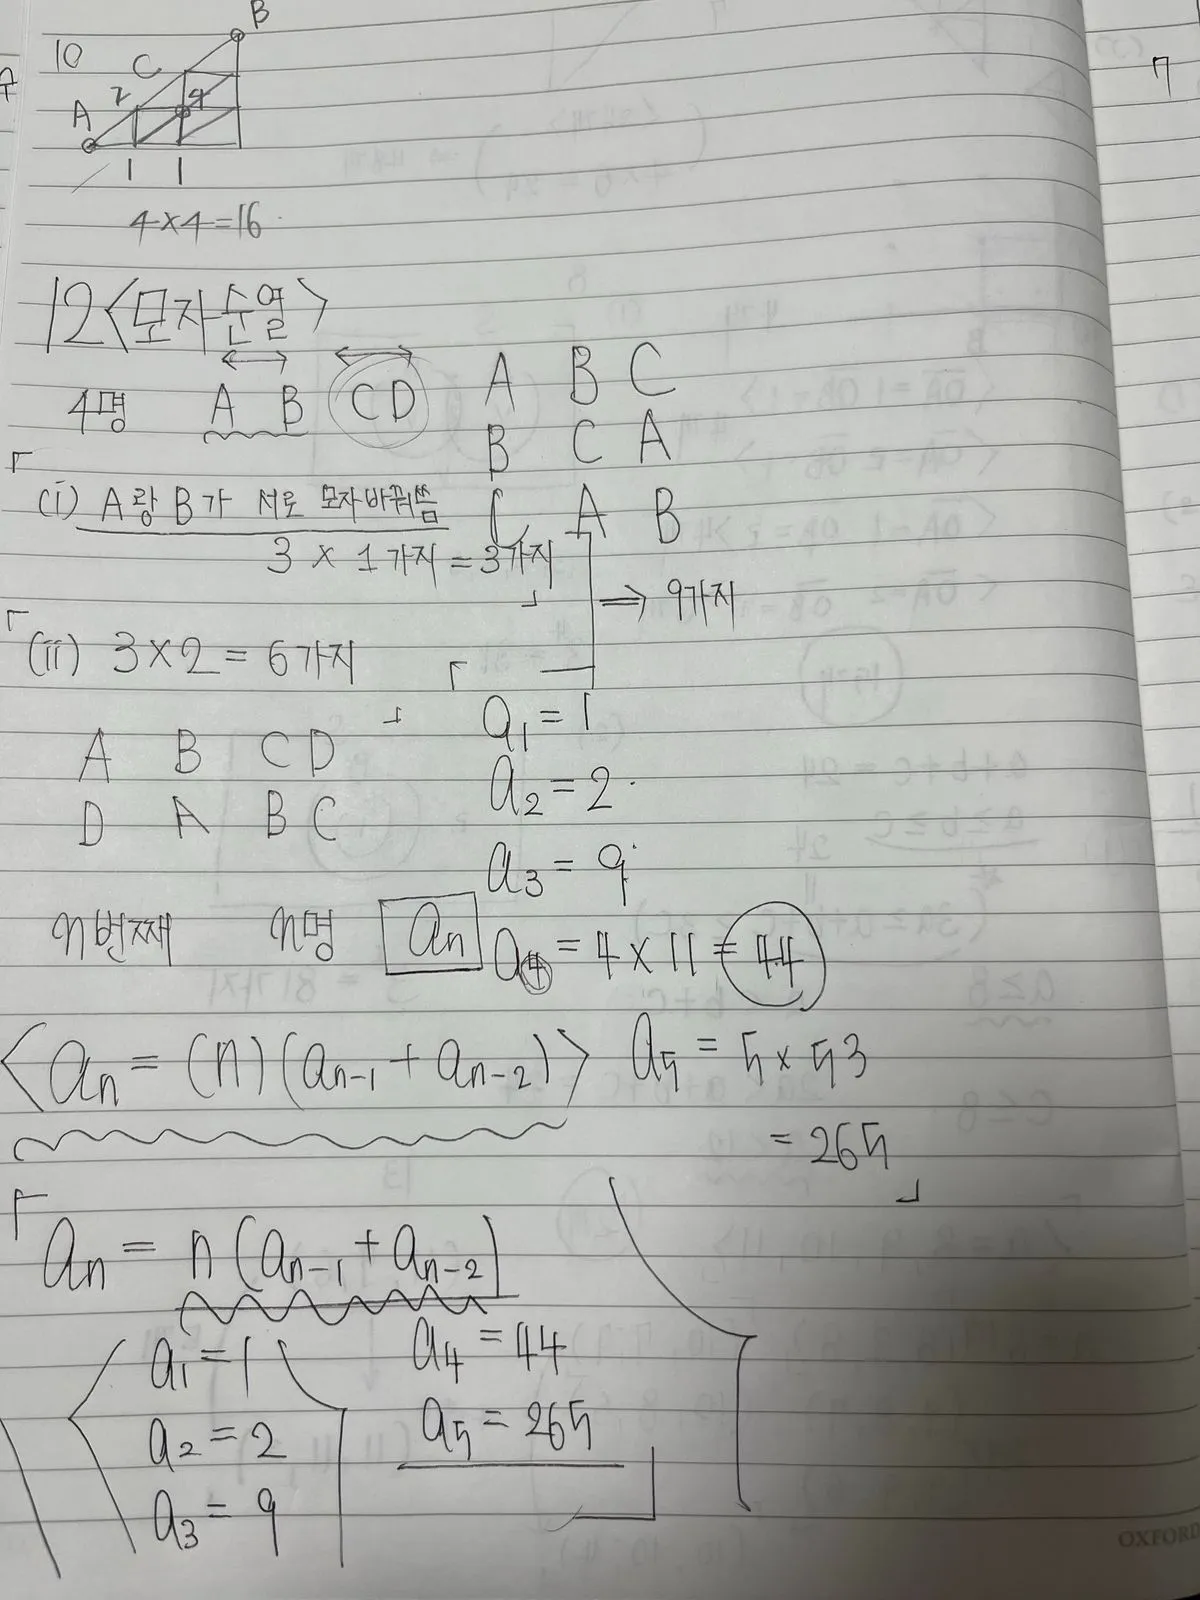 B
10
C
2
4
A
1 1
4×4=16
7
12<모자순열>
4명 A B CD
A B C
B C A
C A B
(i) A랑 B가 서로 모자바꿔씀
3 × 1가지 = 3가지
⇒ 9가지
(ii) 3×2 = 6가지
A B C D
D A B C
a₁ = 1
a₂ = 2
a₃ = 9
n번째 n명 aₙ
a₄ = 4 × 11 = 44
<aₙ = (n)(aₙ₋₁ + aₙ₋₂)>
a₅ = 5 × 53
= 265
aₙ = n(aₙ₋₁ + aₙ₋₂)
a₁ = 1
a₂ = 2
a₃ = 9
a₄ = 44
a₅ = 265
OXFORD